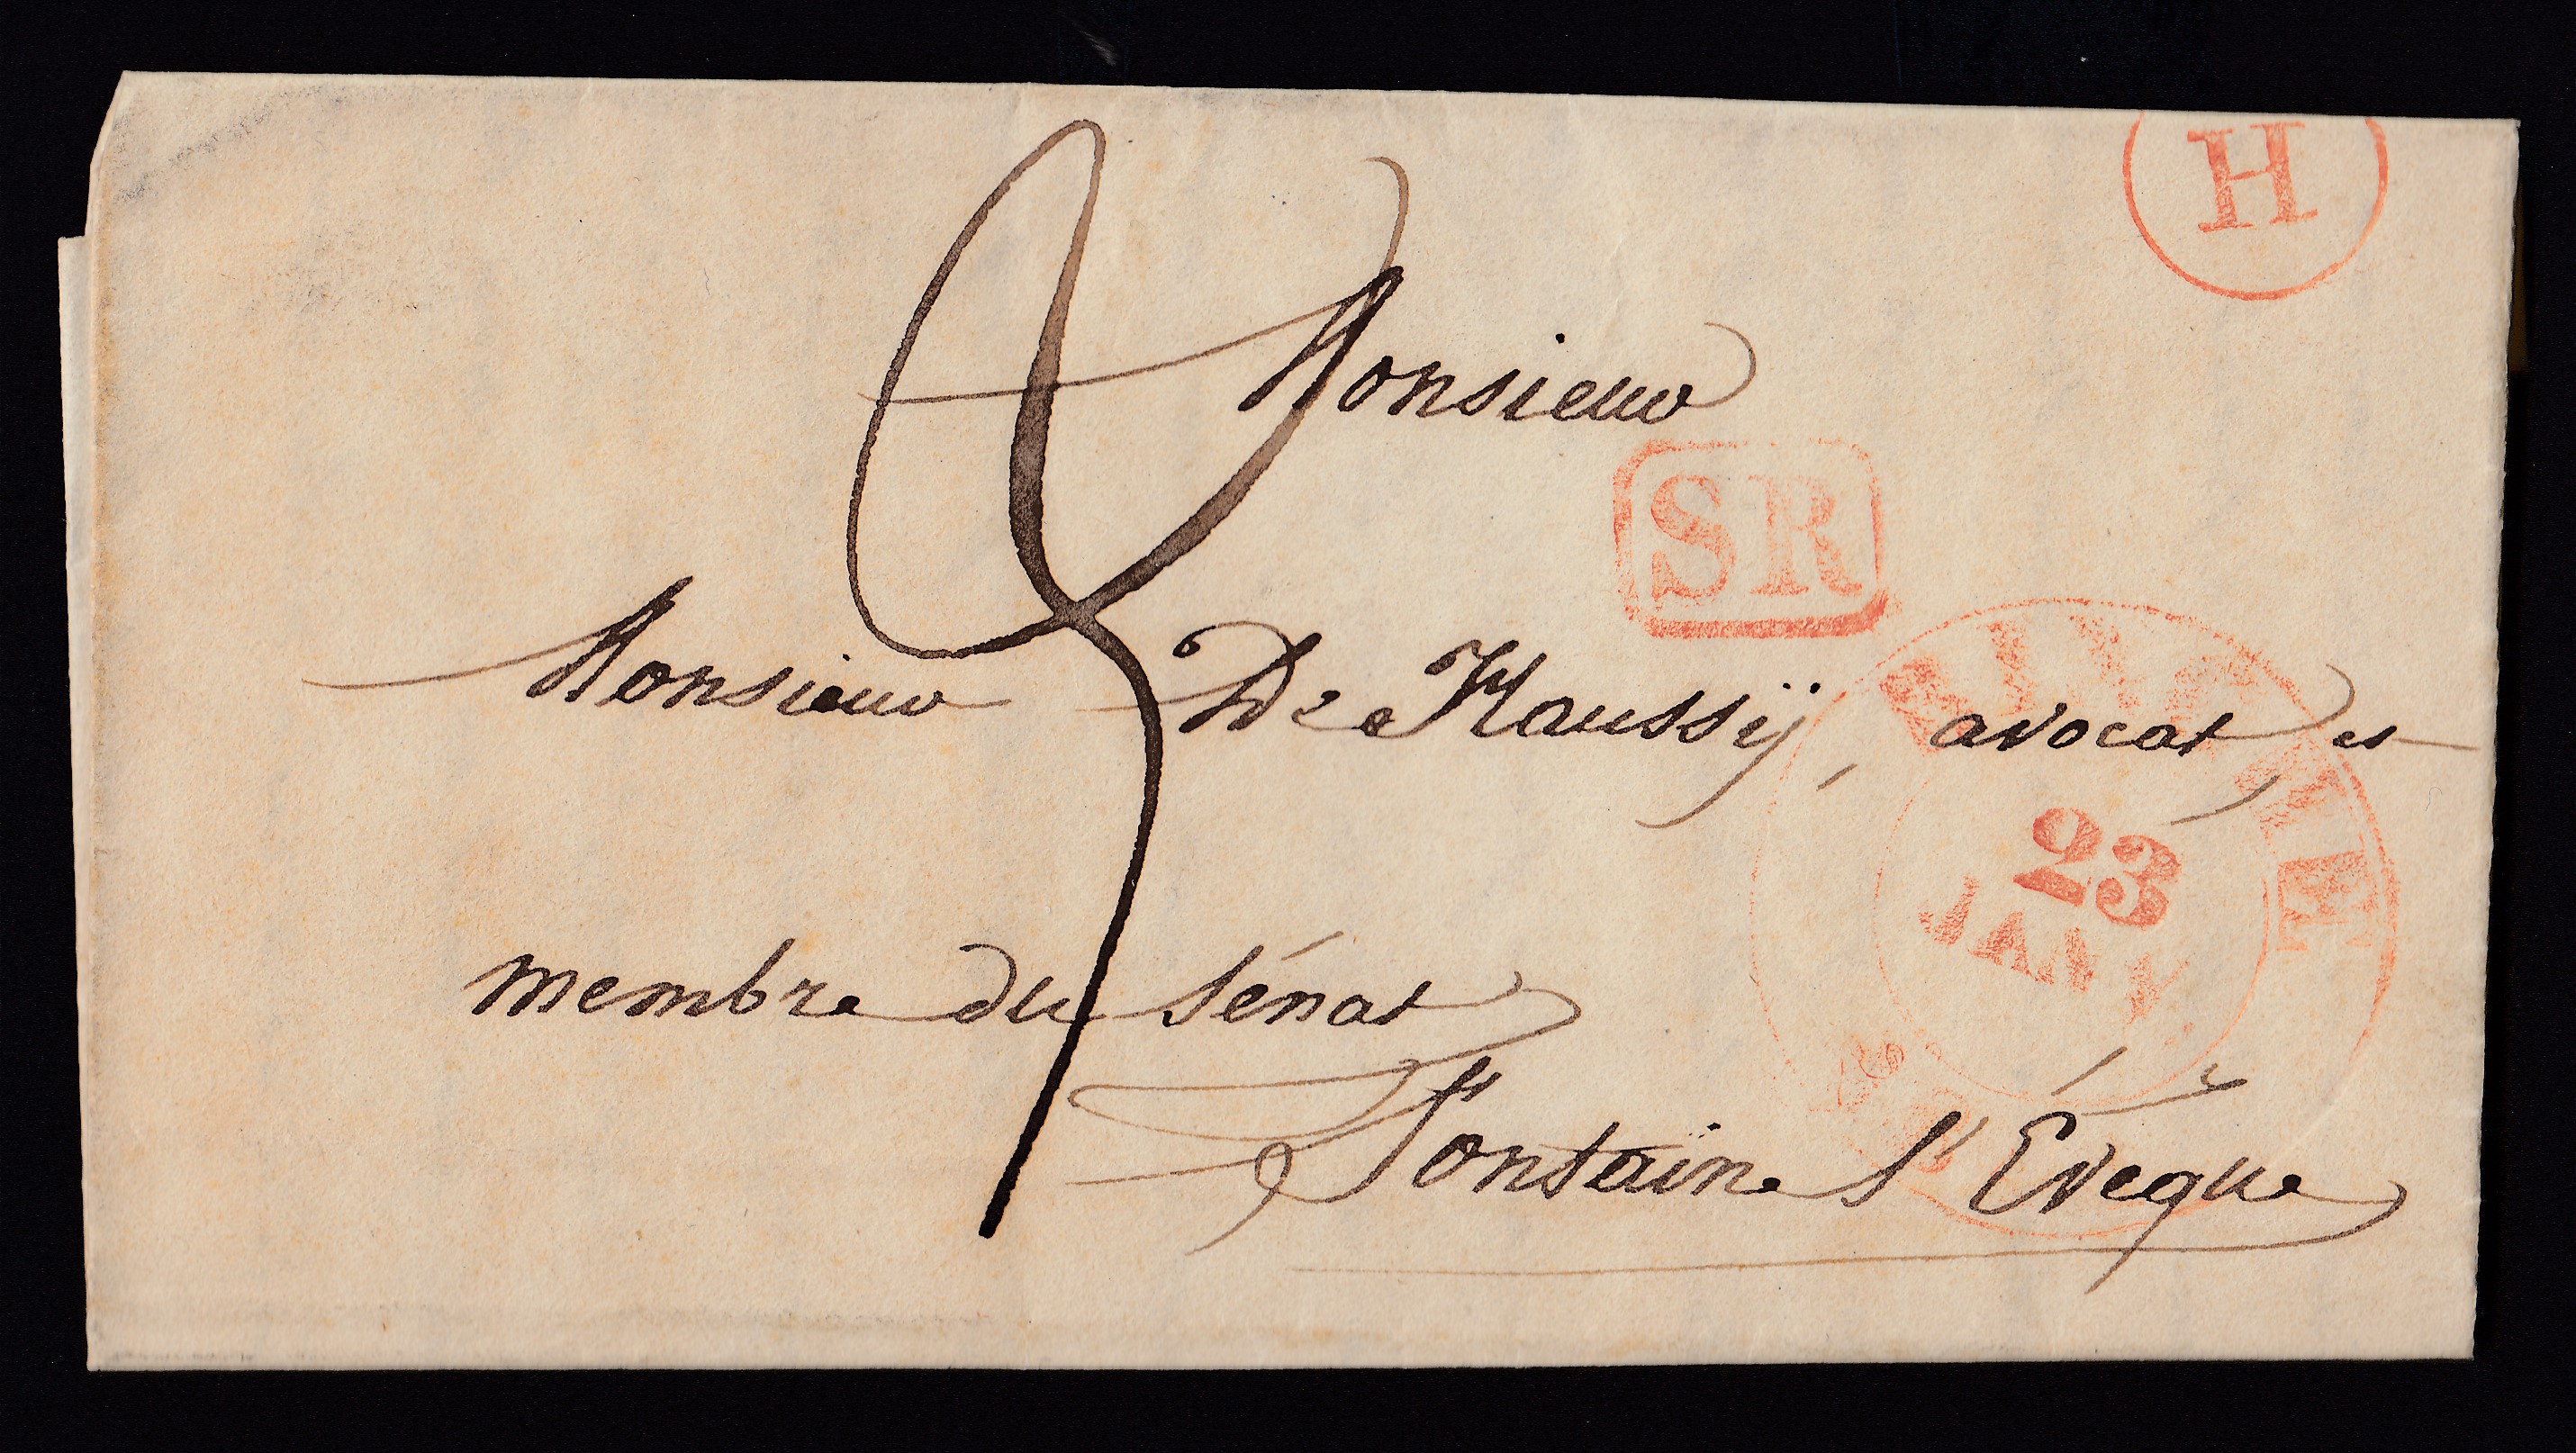 H
Monsieur
SR
Monsieur De Haussÿ, avocat, et
23
JANV
membre du Sénat
Fontaine l'Évêque